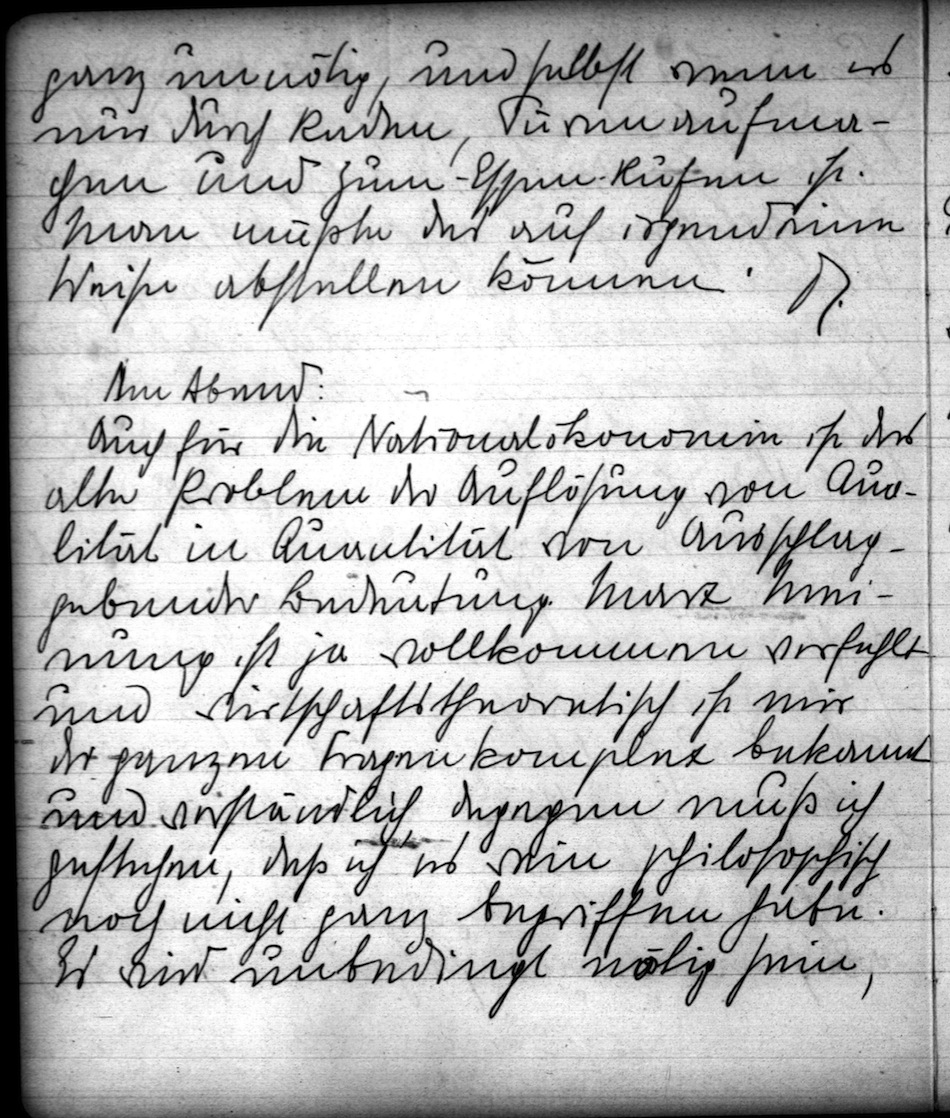 ganz unnötig, und selbst wenn es
nur durch Reden, Türenaufma-
chen und zum-Essen-Rufen ist.
Man müßte das auf irgendeine
Weise abstellen können.
Am Abend:
Auch für die Nationalökonomie ist das
alte Problem der Auflösung von Qua-
lität in Quantität von Ausschlag-
gebender Bedeutung. Marx Mei-
nung ist ja vollkommen verfehlt
und wirtschaftstheoretisch ist mir
der ganzen Fragenkomplex bekannt
und verständlich dagegen muß ich
gestehen, daß ich es rein philosophisch
noch nicht ganz begriffen habe.
Es wird unbedingt nötig sein,